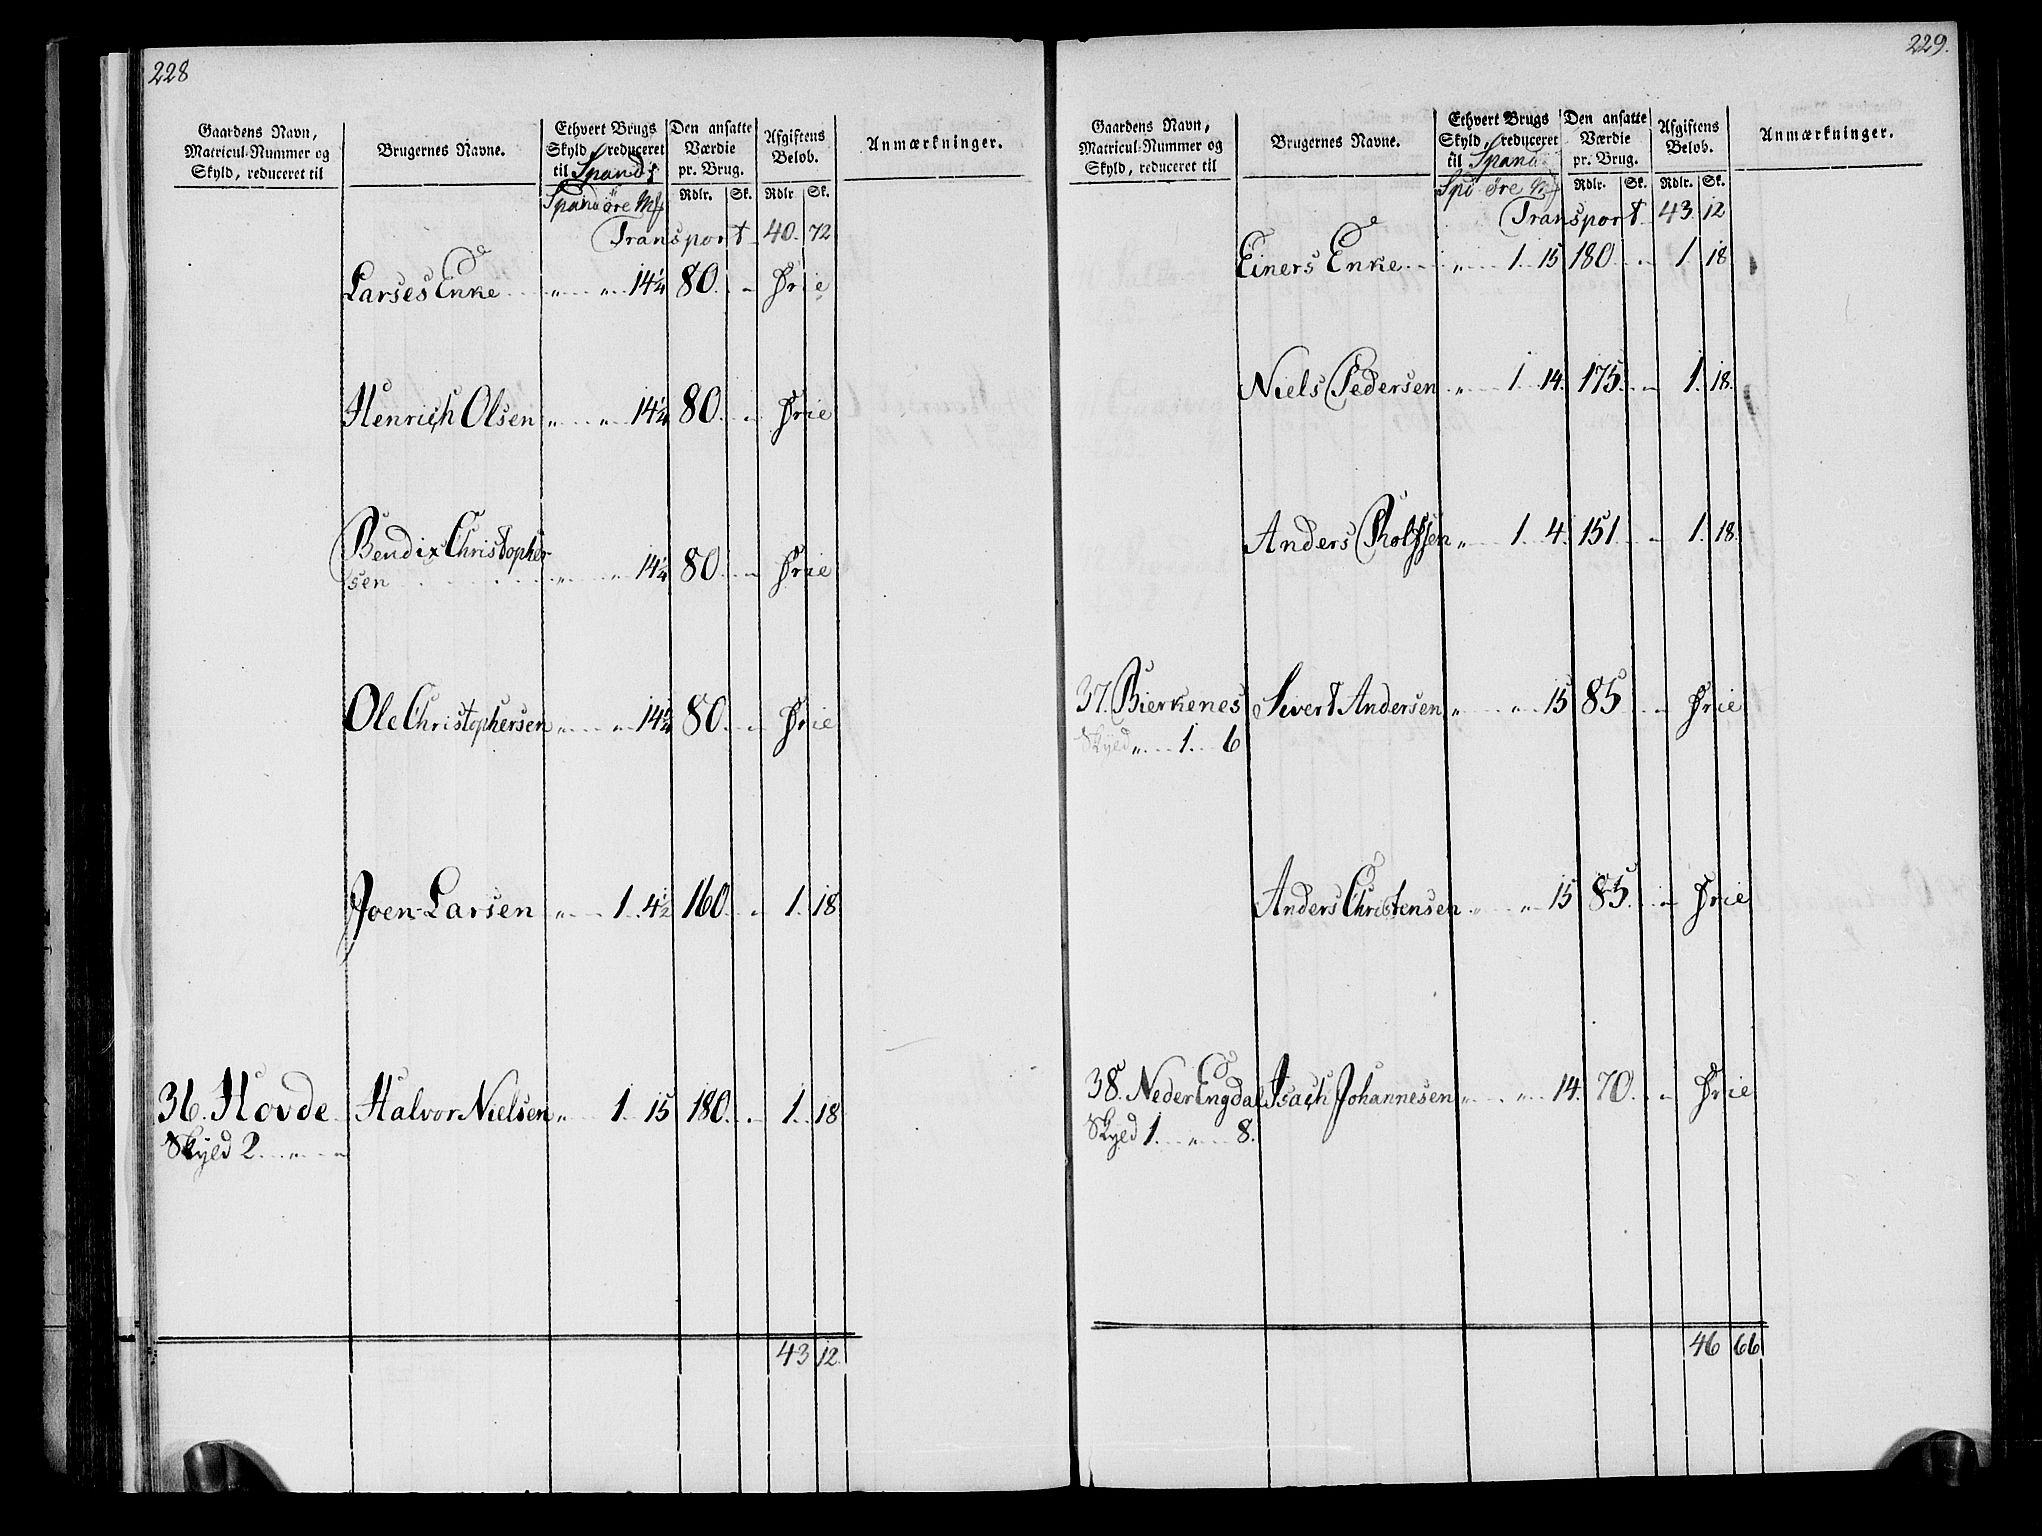 228
Gaardens Navn, Matricul-Nummer og Skyld, reduceret til
Brugernes Navne.
Ethvert Brugs Skyld, reduceret til Spand
Den ansatte Værdie pr. Brug.
Afgiftens Beløb.
Anmærkninger.
Spand öre Mk
Rdlr. Sk. Rdlr Sk.
Transport 40. 72
Larses Enke „ „ 14¼ 80. „ Frie
Henrich Olsen „ „ 14¼ 80. „ Frie
Bendix Christopher
sen „ „ 14¼ 80. „ Frie
Ole Christophersen „ „ 14¼ 80. „ Frie
Joen Larsen „ 1. 4½ 160. „ 1. 18.
36. Hovde Halvor Nielsen „ 1 15 180. „ 1. 18
Skyld 2. „ „
43 12.
229.
Gaardens Navn, Matricul-Nummer og Skyld, reduceret til
Brugernes Navne.
Ethvert Brugs Skyld, reduceret til Spand
Den ansatte Værdie pr. Brug.
Afgiftens Beløb.
Anmærkninger.
Sp: öre Mk
Rdlr. Sk. Rdlr. Sk.
Transport 43. 12
Einers Enke „ 1. 15 180. „ 1. 18
Niels Pedersen „ 1. 14. 175. „ 1. 18.
Anders „ 1. 4. 151. „ 1. 18.
37. Bierkenes Sivert Andersen „ „ 15 85. „ Frie
Skyld „ 1. 6
Anders Christensen „ „ 15 85. „ Frie
38. Neder Engdal Isach Johannesen „ „ 14. 70. „ Frie
Skyld 1. „ 8.
46 66